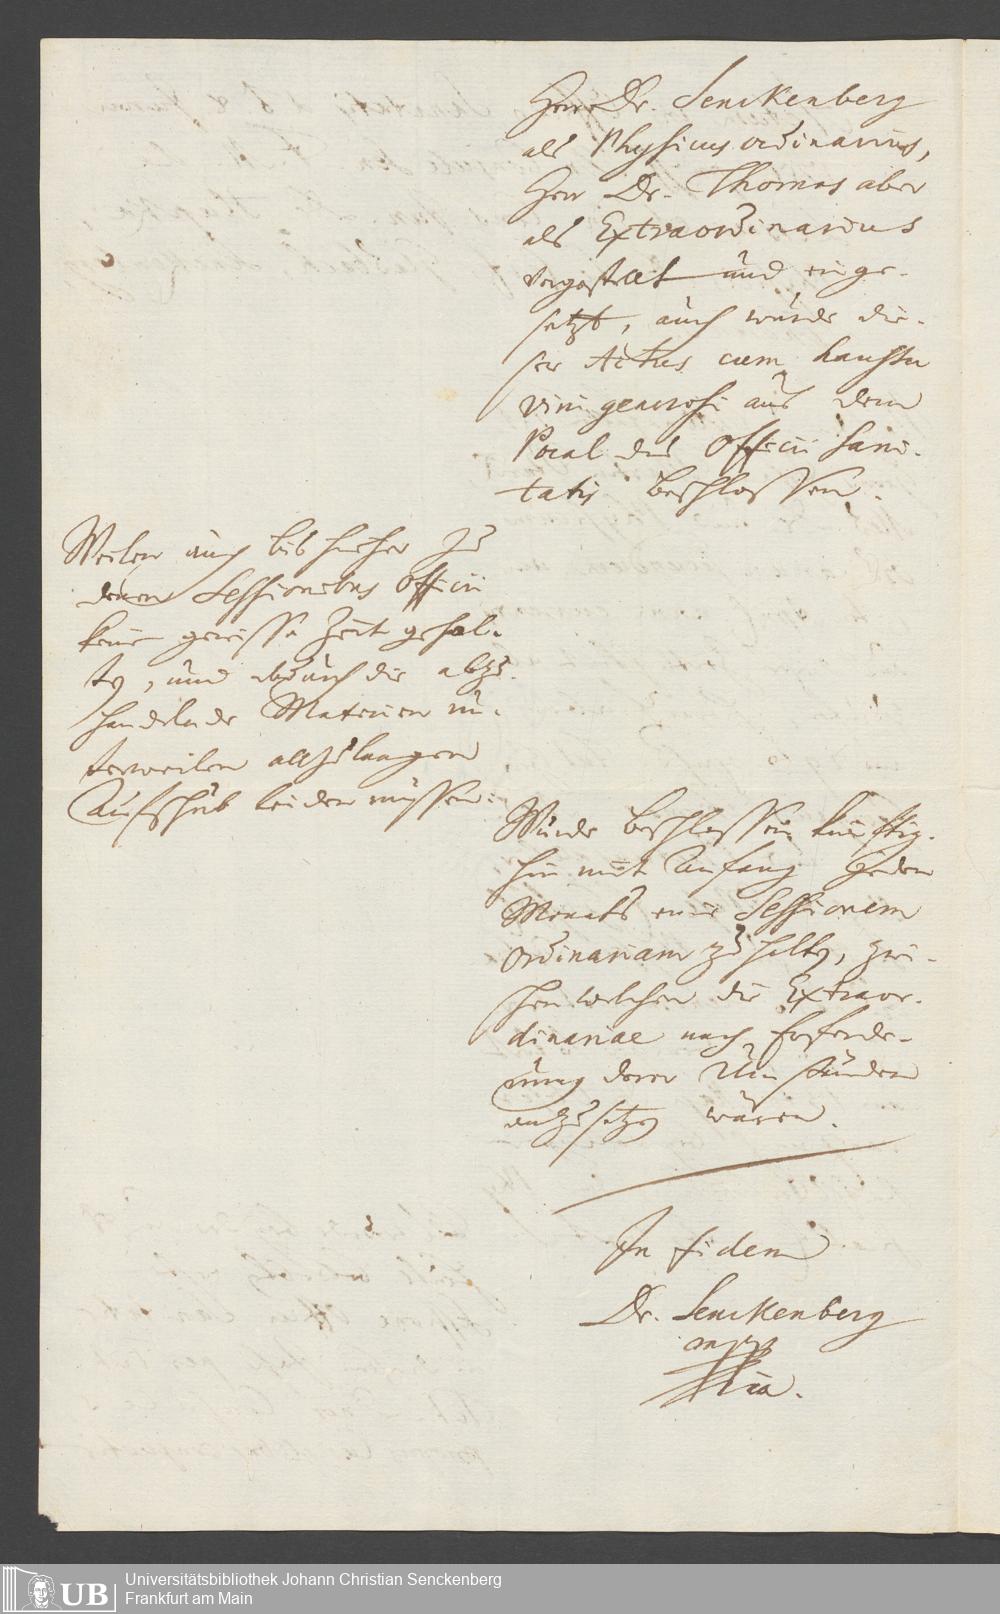 Herr Dr. Senckenberg
als Physicus ordinarius,
Herr Dr. Thomas aber
als Extraordinarius
vorgestellt und einge-
setzt, auch wurde die-
ser Actus cum haustu
vini generosi aus dem
Pocal des Officii Sani-
tatis beschlossen.
Weilen auch bis hieher zu
denen Sessionibus Officii
keine gewisse Zeit gehal-
ten, und dadurch die abzu-
handelnde Materien un-
terweilen allzulangen
Aufschub leiden müssen:
Wurde beschlossen künftig-
hin mit Anfang jeden
Monats eine Sessionem
ordinariam zu halten, zwi-
schen welchen die Extraor-
dinariae nach Erforde-
rung derer Umständen
anzusetzen wären.
In fidem
Dr. Senckenberg
mppria.
UB
Universitätsbibliothek Johann Christian Senckenberg
Frankfurt am Main